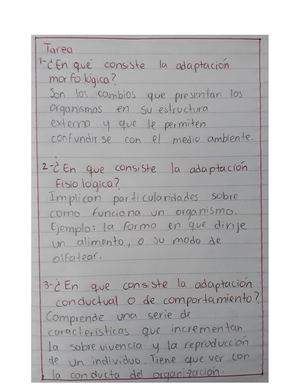 Tarea
1-¿En qué consiste la adaptación
morfológica?
Son los cambios que presentan los
organismos en su estructura
externa y que le permiten
confundirse con el medio ambiente.
2-¿En que consiste la adaptación
fisiológica?
Implican particularidades sobre
como funciona un organismo.
Ejemplo: la forma en que dirije
un alimento, o su modo de
olfatear.
3-¿En que consiste la adaptación
conductual o de comportamiento?
Comprende una serie de
características que incrementan
la sobrevivencia y la reproducción
de un individuo. Tiene que ver con
la conducta del organización